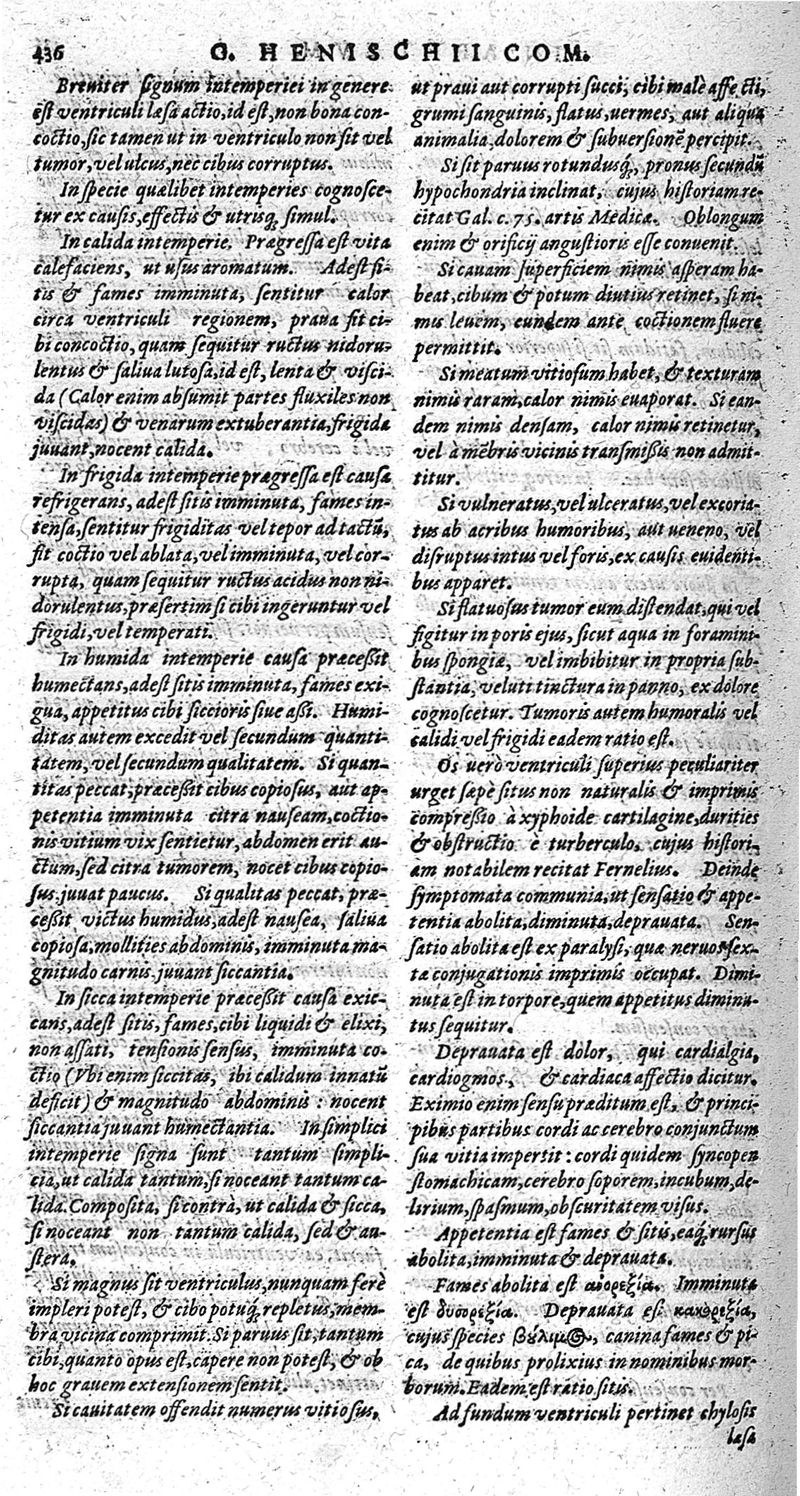 436
G. HENISCHII COM.
Breviter signum intemperiei in genere
est ventriculi læsa actio, id est, non bona con-
coctio, sic tamen ut in ventriculo non sit vel
tumor, vel ulcus, nec cibus corruptus.
In specie quælibet intemperies cognosce-
tur ex causis, effectis & utrisq́; simul.
In calida intemperie. Prægressa est vita
calefaciens, ut usus aromatum. Adest si-
tis & fames imminuta, sentitur calor
circa ventriculi regionem, praua fit ci-
bi concoctio, quam sequitur ructus nidoru-
lentus & saliua lutosa, id est, lenta & visci-
da (Calor enim absumit partes fluxiles non
viscidas) & venarum extuberantia, frigida
juuant, nocent calida.
In frigida intemperie prægressa est causa
refrigerans, adest sitis imminuta, fames in-
tensa, sentitur frigiditas vel tepor ad tactũ,
fit coctio vel ablata, vel imminuta, vel cor-
rupta, quam sequitur ructus acidus non ni-
dorulentus, præsertim si cibi ingeruntur vel
frigidi, vel temperati.
In humida intemperie causa præceßit
humectans, adest sitis imminuta, fames exi-
gua, appetitus cibi siccioris siue aßi. Humi-
ditas autem excedit vel secundum quanti-
tatem, vel secundum qualitatem. Si quan-
titas peccat, præceßit cibus copiosus, aut ap-
petentia imminuta citra nauseam, coctio-
nis vitium vix sentietur, abdomen erit au-
ctum, sed citra tumorem, nocet cibus copio-
sus, juuat paucus. Si qualitas peccat, præ-
ceßit victus humidus, adest nausea, saliua
copiosa, mollities abdominis, imminuta ma-
gnitudo carnis. juuant siccantia.
In sicca intemperie præceßit causa exic-
cans, adest sitis, fames, cibi liquidi & elixi,
non assati, tensionis sensus, imminuta co-
ctio (Vbi enim siccitas, ibi calidum innatũ
deficit) & magnitudo abdominis : nocent
siccantia juuant humectantia. In simplici
intemperie signa sunt tantum simpli-
cia, ut calida tantum, si noceant tantum ca-
lida. Composita, si contrà, ut calida & sicca,
si noceant non tantum calida, sed & au-
stera.
Si magnus sit ventriculus, nunquam ferè
impleri potest, & cibo potuq́; repletus, mem-
bra vicina comprimit. Si paruus sit, tantum
cibi, quanto opus est, capere non potest, & ob
hoc grauem extensionem sentit.
Si cauitatem offendit numerus vitiosus,
ut praui aut corrupti succi, cibi malè affecti,
grumi sanguinis, flatus, uermes, aut aliqua
animalia, dolorem & subuersionẽ percipit.
Si sit paruus rotundusq́;, pronus secundũ
hypochondria inclinat, cujus historiam re-
citat Gal. c. 75. artis Medicæ. Oblongum
enim & orificij angustioris esse conuenit.
Si cauam superficiem nimis asperam ha-
beat, cibum & potum diutius retinet, si ni-
mis leuem, eundem ante coctionem fluere
permittit.
Si meatum vitiosum habet, & texturam
nimis raram, calor nimis euaporat. Si ean-
dem nimis densam, calor nimis retinetur,
vel à mẽbris vicinis transmißis non admit-
titur.
Si vulneratus, vel ulceratus, vel excoria-
tus ab acribus humoribus, aut ueneno, vel
disruptus intus vel foris, ex causis euidenti-
bus apparet.
Si flatuosus tumor eum distendat, qui vel
figitur in poris ejus, sicut aqua in foramini-
bus spongiæ, vel imbibitur in propria sub-
stantia, veluti tinctura in panno, ex dolore
cognoscetur. Tumoris autem humoralis vel
calidi vel frigidi eadem ratio est.
Os uerò ventriculi superius peculiariter
urget sæpè situs non naturalis & imprimis
compreßio à xyphoide cartilagine, durities
& obstructio è turberculo, cujus histori-
am notabilem recitat Fernelius. Deinde
symptomata communia, ut sensatio & appe-
tentia abolita, diminuta, deprauata. Sen-
satio abolita est ex paralysi, quæ neruos sex-
ta conjugationis imprimis occupat. Dimi-
nuta est in torpore, quem appetitus diminu-
tus sequitur.
Deprauata est dolor, qui cardialgia,
cardiogmos, & cardiaca affectio dicitur.
Eximio enim sensu præditum est, & princi-
pibus partibus cordi ac cerebro conjunctum
sua vitia impertit : cordi quidem syncopen
stomachicam, cerebro soporem, incubum, de-
lirium, spasmum, obscuritatem visus.
Appetentia est fames & sitis, eaq́; rursus
abolita, imminuta & deprauata.
Fames abolita est ἀνορεξία. Imminuta
est δυσορεξία. Deprauata est κακορεξία,
cujus species βούλιμος, canina fames & pi-
ca, de quibus prolixius in nominibus mor-
borum. Eadem est ratio sitis.
Ad fundum ventriculi pertinet chylosis
læsa